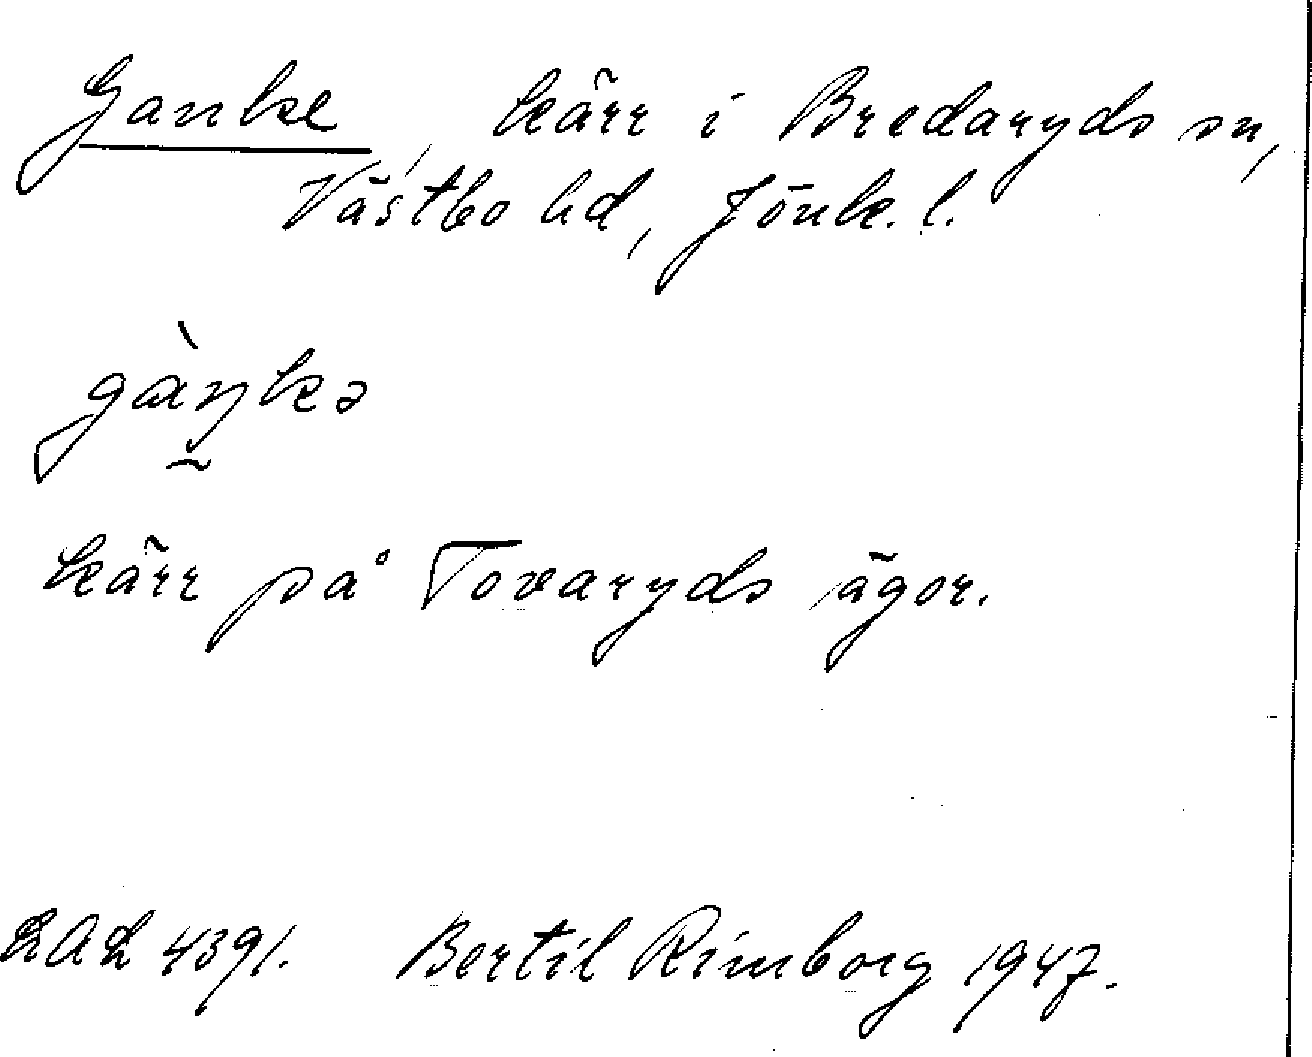 Ganke, kärr i Bredaryds sn,
Västbo hd, Jönk. l.
gàŋkə
kärr på Tovaryds ägor.
LAL 4391. Bertil Rimborg 1947.